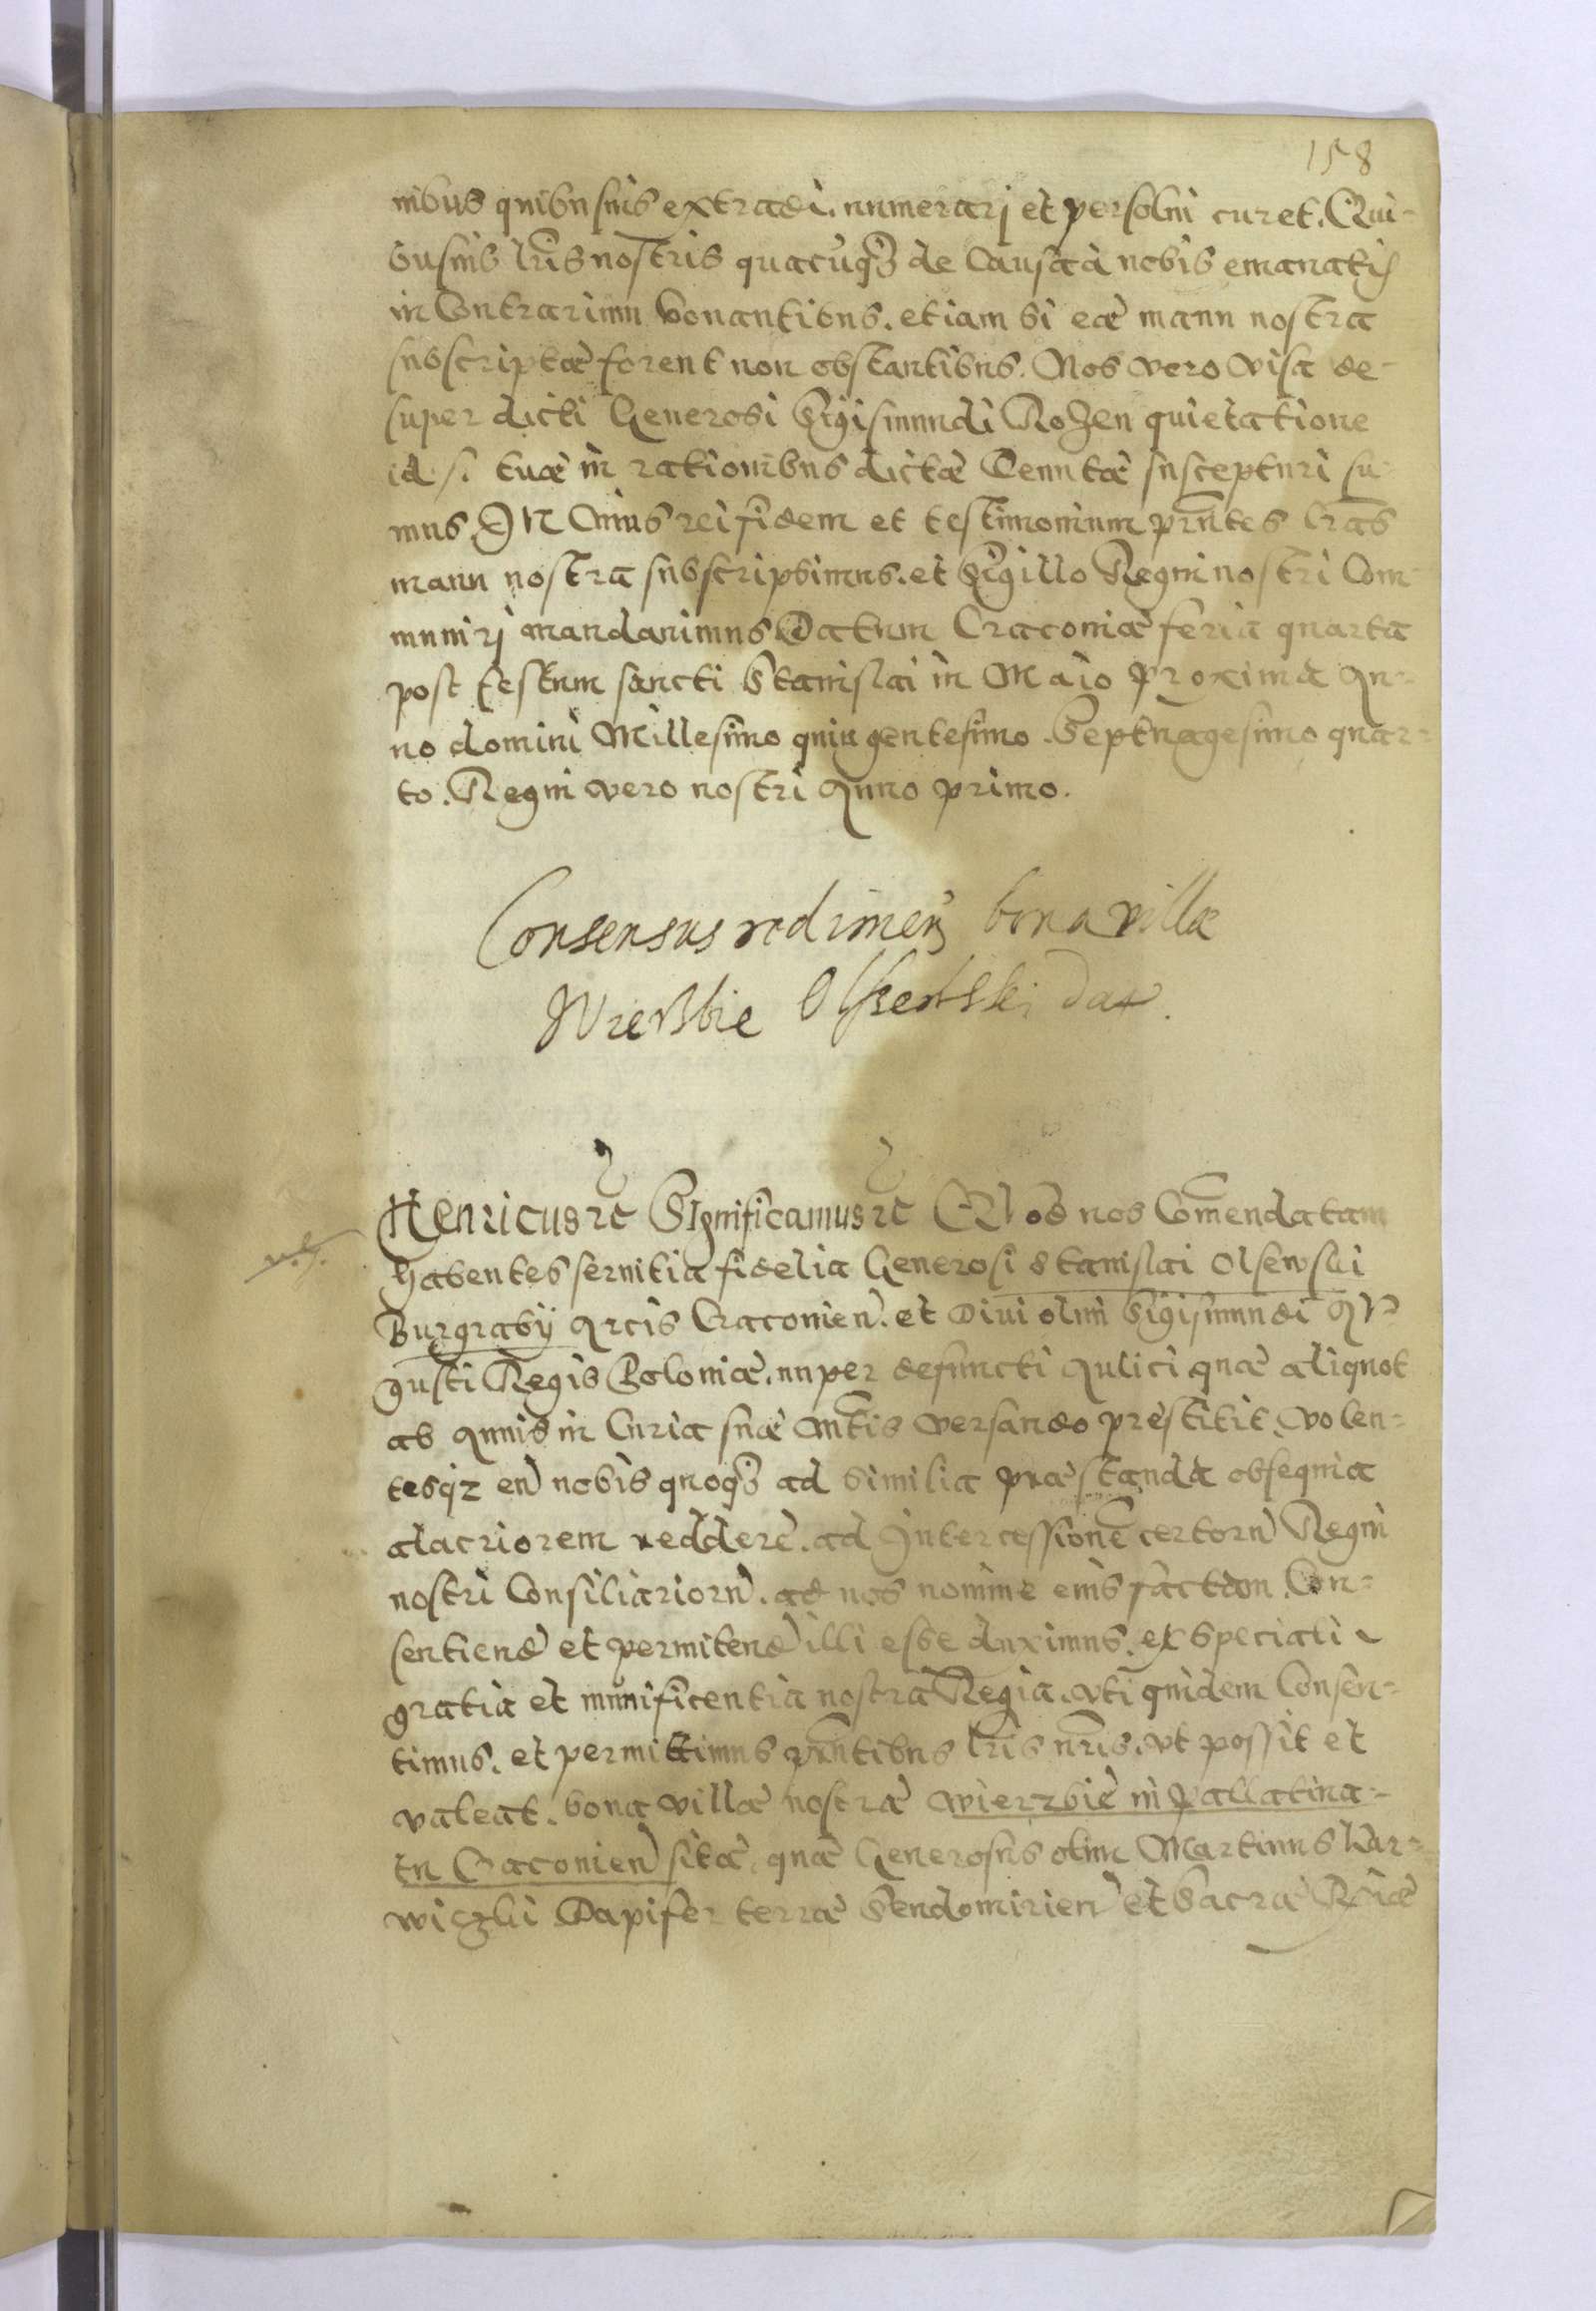 158
nibus quibusuis extradi. numerarj et persolui curet. Qui-
busuis lris nostris quacuqз de Causa à nobis emanatis
in Contrarium sonantibus. etiam si eæ manu nostra
subscriptæ forent non obstantibus. Nos vero visa de-
super dicti Generosi Sigismundi Rozen quietatione
id s. tuæ in rationibus dictæ suscepturi su-
mus. IN Cuius rei fidem et testimonium prntes lras
manu nostra subscripsimus. et Sigillo Regni nostri Com-
munirj mandauimus Datum Cracouiæ feria quarta
post festum sancti Stanislai in Maio proxima An-
no domini Millesimo quingentesimo Septuagesimo quar-
to. Regni vero nostri Anno primo.
Consensus redimen bona villæ
Wierzbie Olsewski dat.
Henricus rc Significamus rc Quod nos Commendatam
habentes seruitia fidelia Generosi Stanislai Olsewski
Burgrabij Arcis Cracouien. et Diui olim Sigismundi Au-
gusti Regis Poloniæ. nuper defuncti Aulici quæ aliquot
ab Annis in Curia suæ Mtis versando prestitit. volen-
tesqz eu nobis quoqз ad similia præstanda obsequia
alacriorem reddere. ad Intercessione certoru Regni
nostri Consiliarioru. ad nos nomine eius factam. Con-
sentiend et permitend illi esse duximus. ex speciali
gratia et munificentia nostra Regia. vti quidem Consen-
timus. et permittimus prntibus lris nris. vt possit et
valeat. bona villæ nostræ wierzbie in pallatina-
tu Cracouien sitæ, quæ Generosus olim Martinus
Dapifer terræ Sendomirien et Sacræ Rgiæ